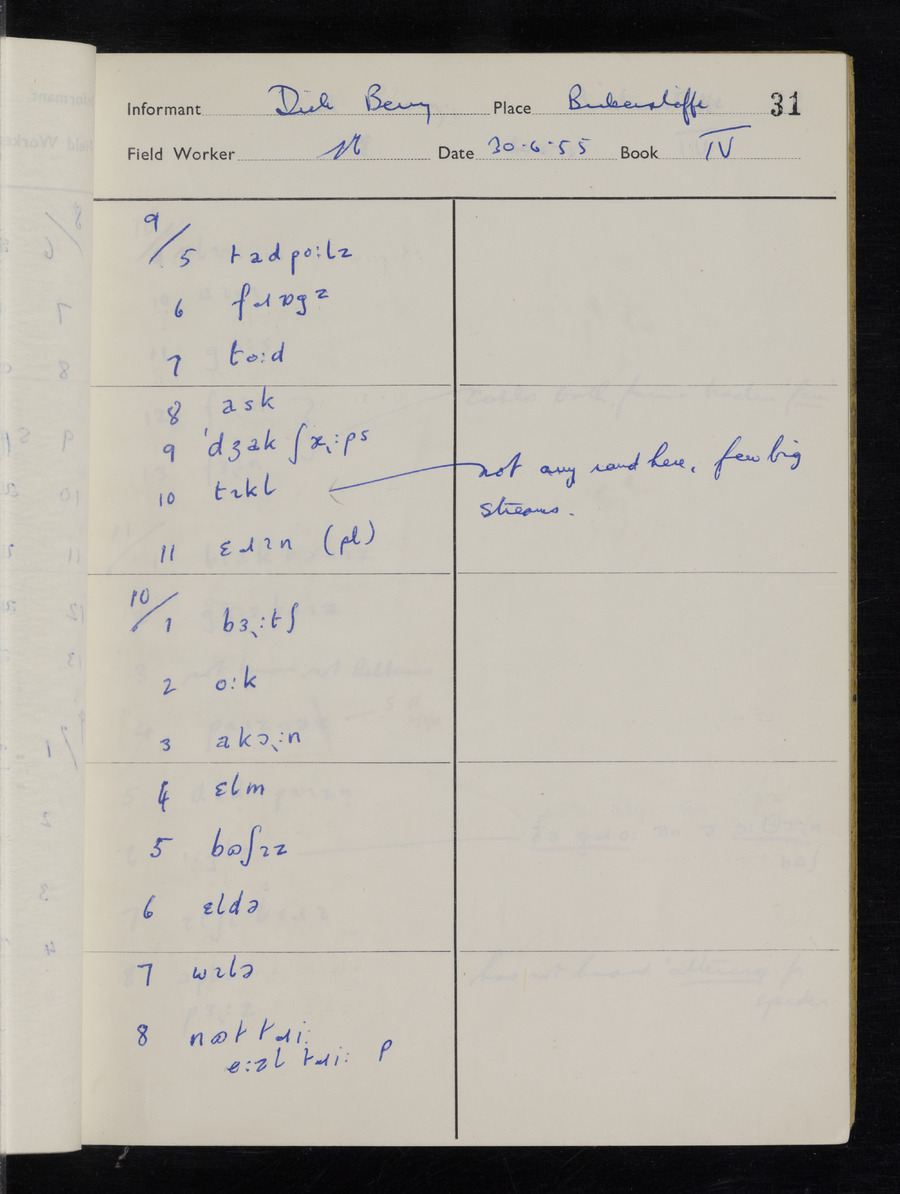 Informant Dick Berry Place Bickerstaffe 31
Field Worker Date 30·6·55 Book IV
9/5 tadpo:lz
6 fɹɒgz
7 to:d
8 ask
9 'dʒak ʃɪ:ps
10 tɪkl
not any sand here, few big
streams.
11 ɛɹɪn (pl)
10/1 bɜ:tʃ
2 o:k
3 akɔ:n
4 ɛlm
5 bʊʃɪz
6 ɛldə
7 wɪlə
8 nʊt tɹi:
e:zl tɹi: p